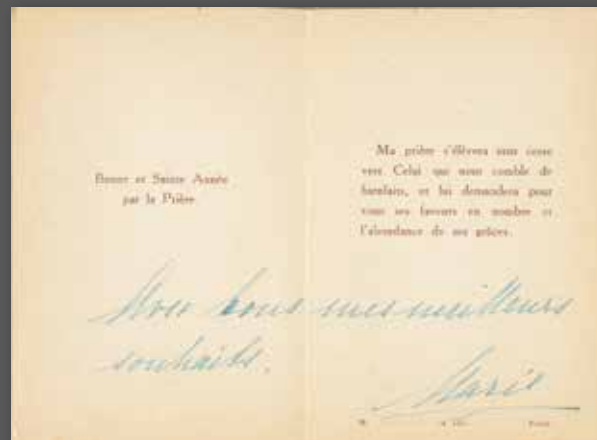 Bonne et Sainte Année
par la Prière.
Ma prière s'élèvera sans cesse
vers Celui qui nous comble de
bienfaits, et lui demandera pour
vous ses faveurs en nombre et
l'abondance de ses grâces.
Avec tous mes meilleurs
souhaits.
Marie